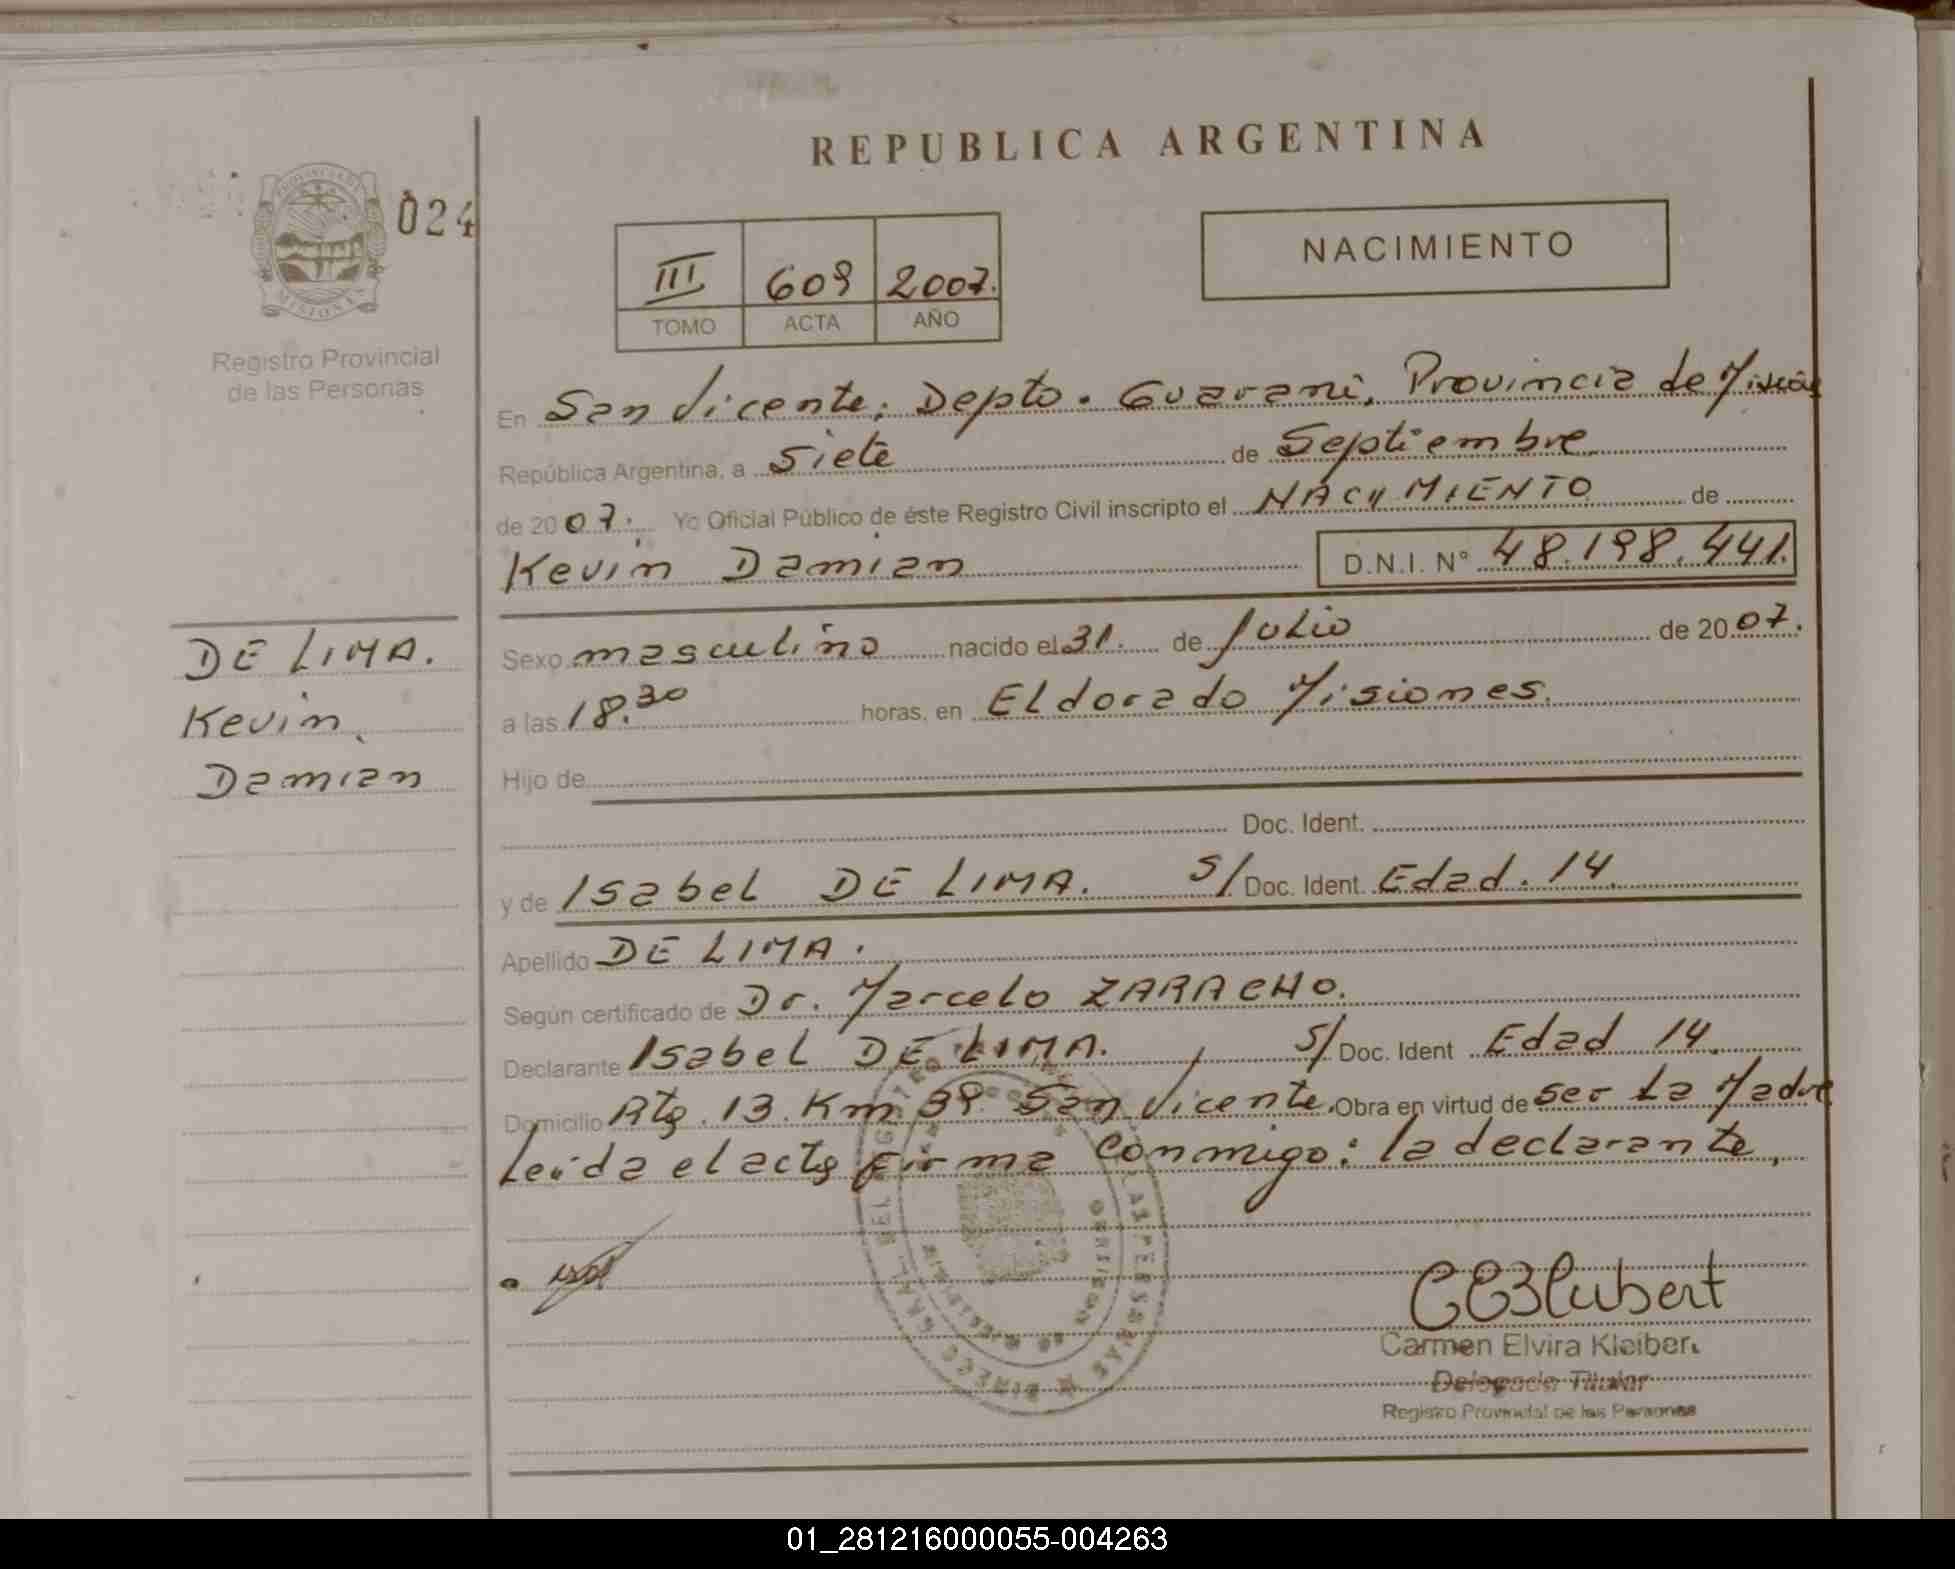 REPUBLICA ARGENTINA
024
PROVINCIA DE
MISIONES
Registro Provincial
de las Personas
III 609 2007.
TOMO ACTA AÑO
NACIMIENTO
En San Vicente, Depto. Guaraní, Provincia de Misiones
República Argentina, a siete de Septiembre
de 2007. Yo Oficial Público de éste Registro Civil inscripto el NACIMIENTO de
Kevin Damian D.N.I. N° 48.198.441.
DE LIMA.
Kevin
Damian
Sexo masculino nacido el 31. de Julio de 2007.
a las 18.30 horas, en Eldorado Misiones.
Hijo de
Doc. Ident.
y de Isabel DE LIMA. S/ Doc. Ident. Edad. 14.
Apellido DE LIMA.
Según certificado de Dr. Marcelo ZARACHO.
Declarante Isabel DE LIMA. S/ Doc. Ident Edad 14.
Domicilio Rta. 13. Km 39 San Vicente. Obra en virtud de ser La Madre
Leida el acta firma conmigo: la declarante,
Carmen Elvira Kleiber
Delegada Titular
Registro Provincial de las Personas
01_281216000055-004263